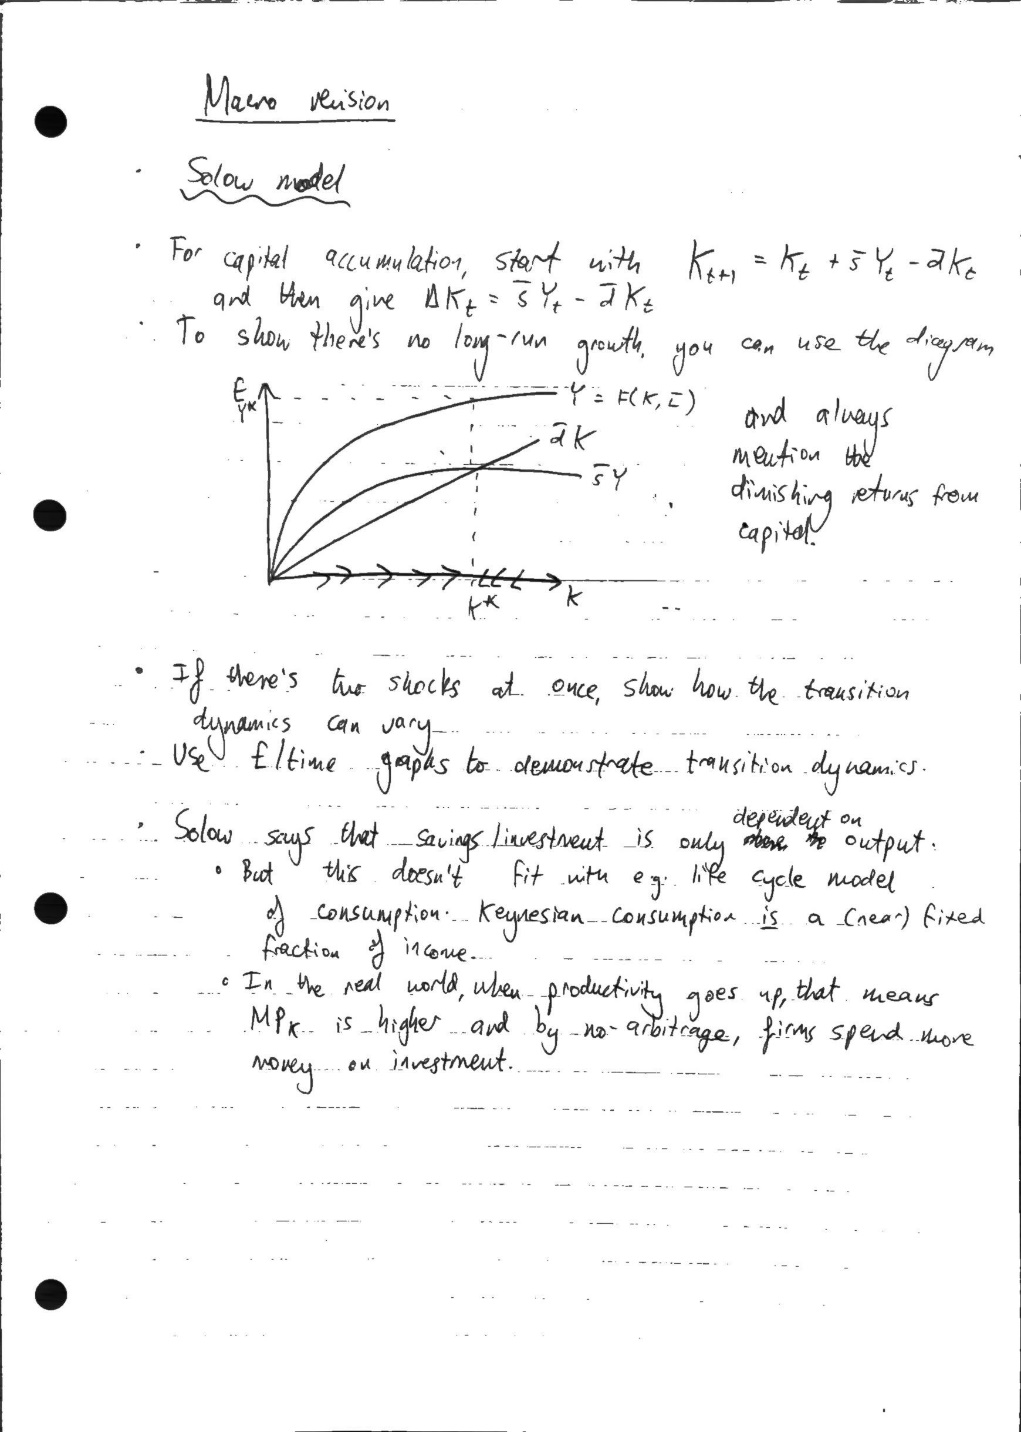 Macro revision
Solow model
For capital accumulation, start with K_{t+1} = K_t + s̄ Y_t - d̄ K_t
and then give ΔK_t = s̄ Y_t - d̄ K_t
To show there's no long-run growth, you can use the diagram
£
Y*
Y = F(K, L̄)
d̄ K
s̄ Y
K*
K
and always
mention the
dimishing returns from
capital.
If there's two shocks at once, show how the transition
dynamics can vary
Use £/time graphs to demonstrate transition dynamics.
Solow says that savings/investment is only dependent on output.
But this doesn't fit with eg. life cycle model
of consumption. Keynesian consumption is a (near) fixed
fraction of income.
In the real world, when productivity goes up, that means
MP_K is higher and by no-arbitrage, firms spend more
money on investment.